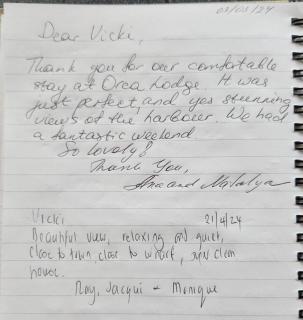 03/03/24
Dear Vicki,
Thank you for our comfortable
stay at Orca Lodge. It was
just perfect, and yes stunning
views of the harbour. We had
a fantastic weekend
So lovely!
Thank You,
and Natalya
Vicki 21/4/24
Beautiful view, relaxing and quiet,
Close to town, close to wharf, and clean
house.
Ray, Jacqui + Monique